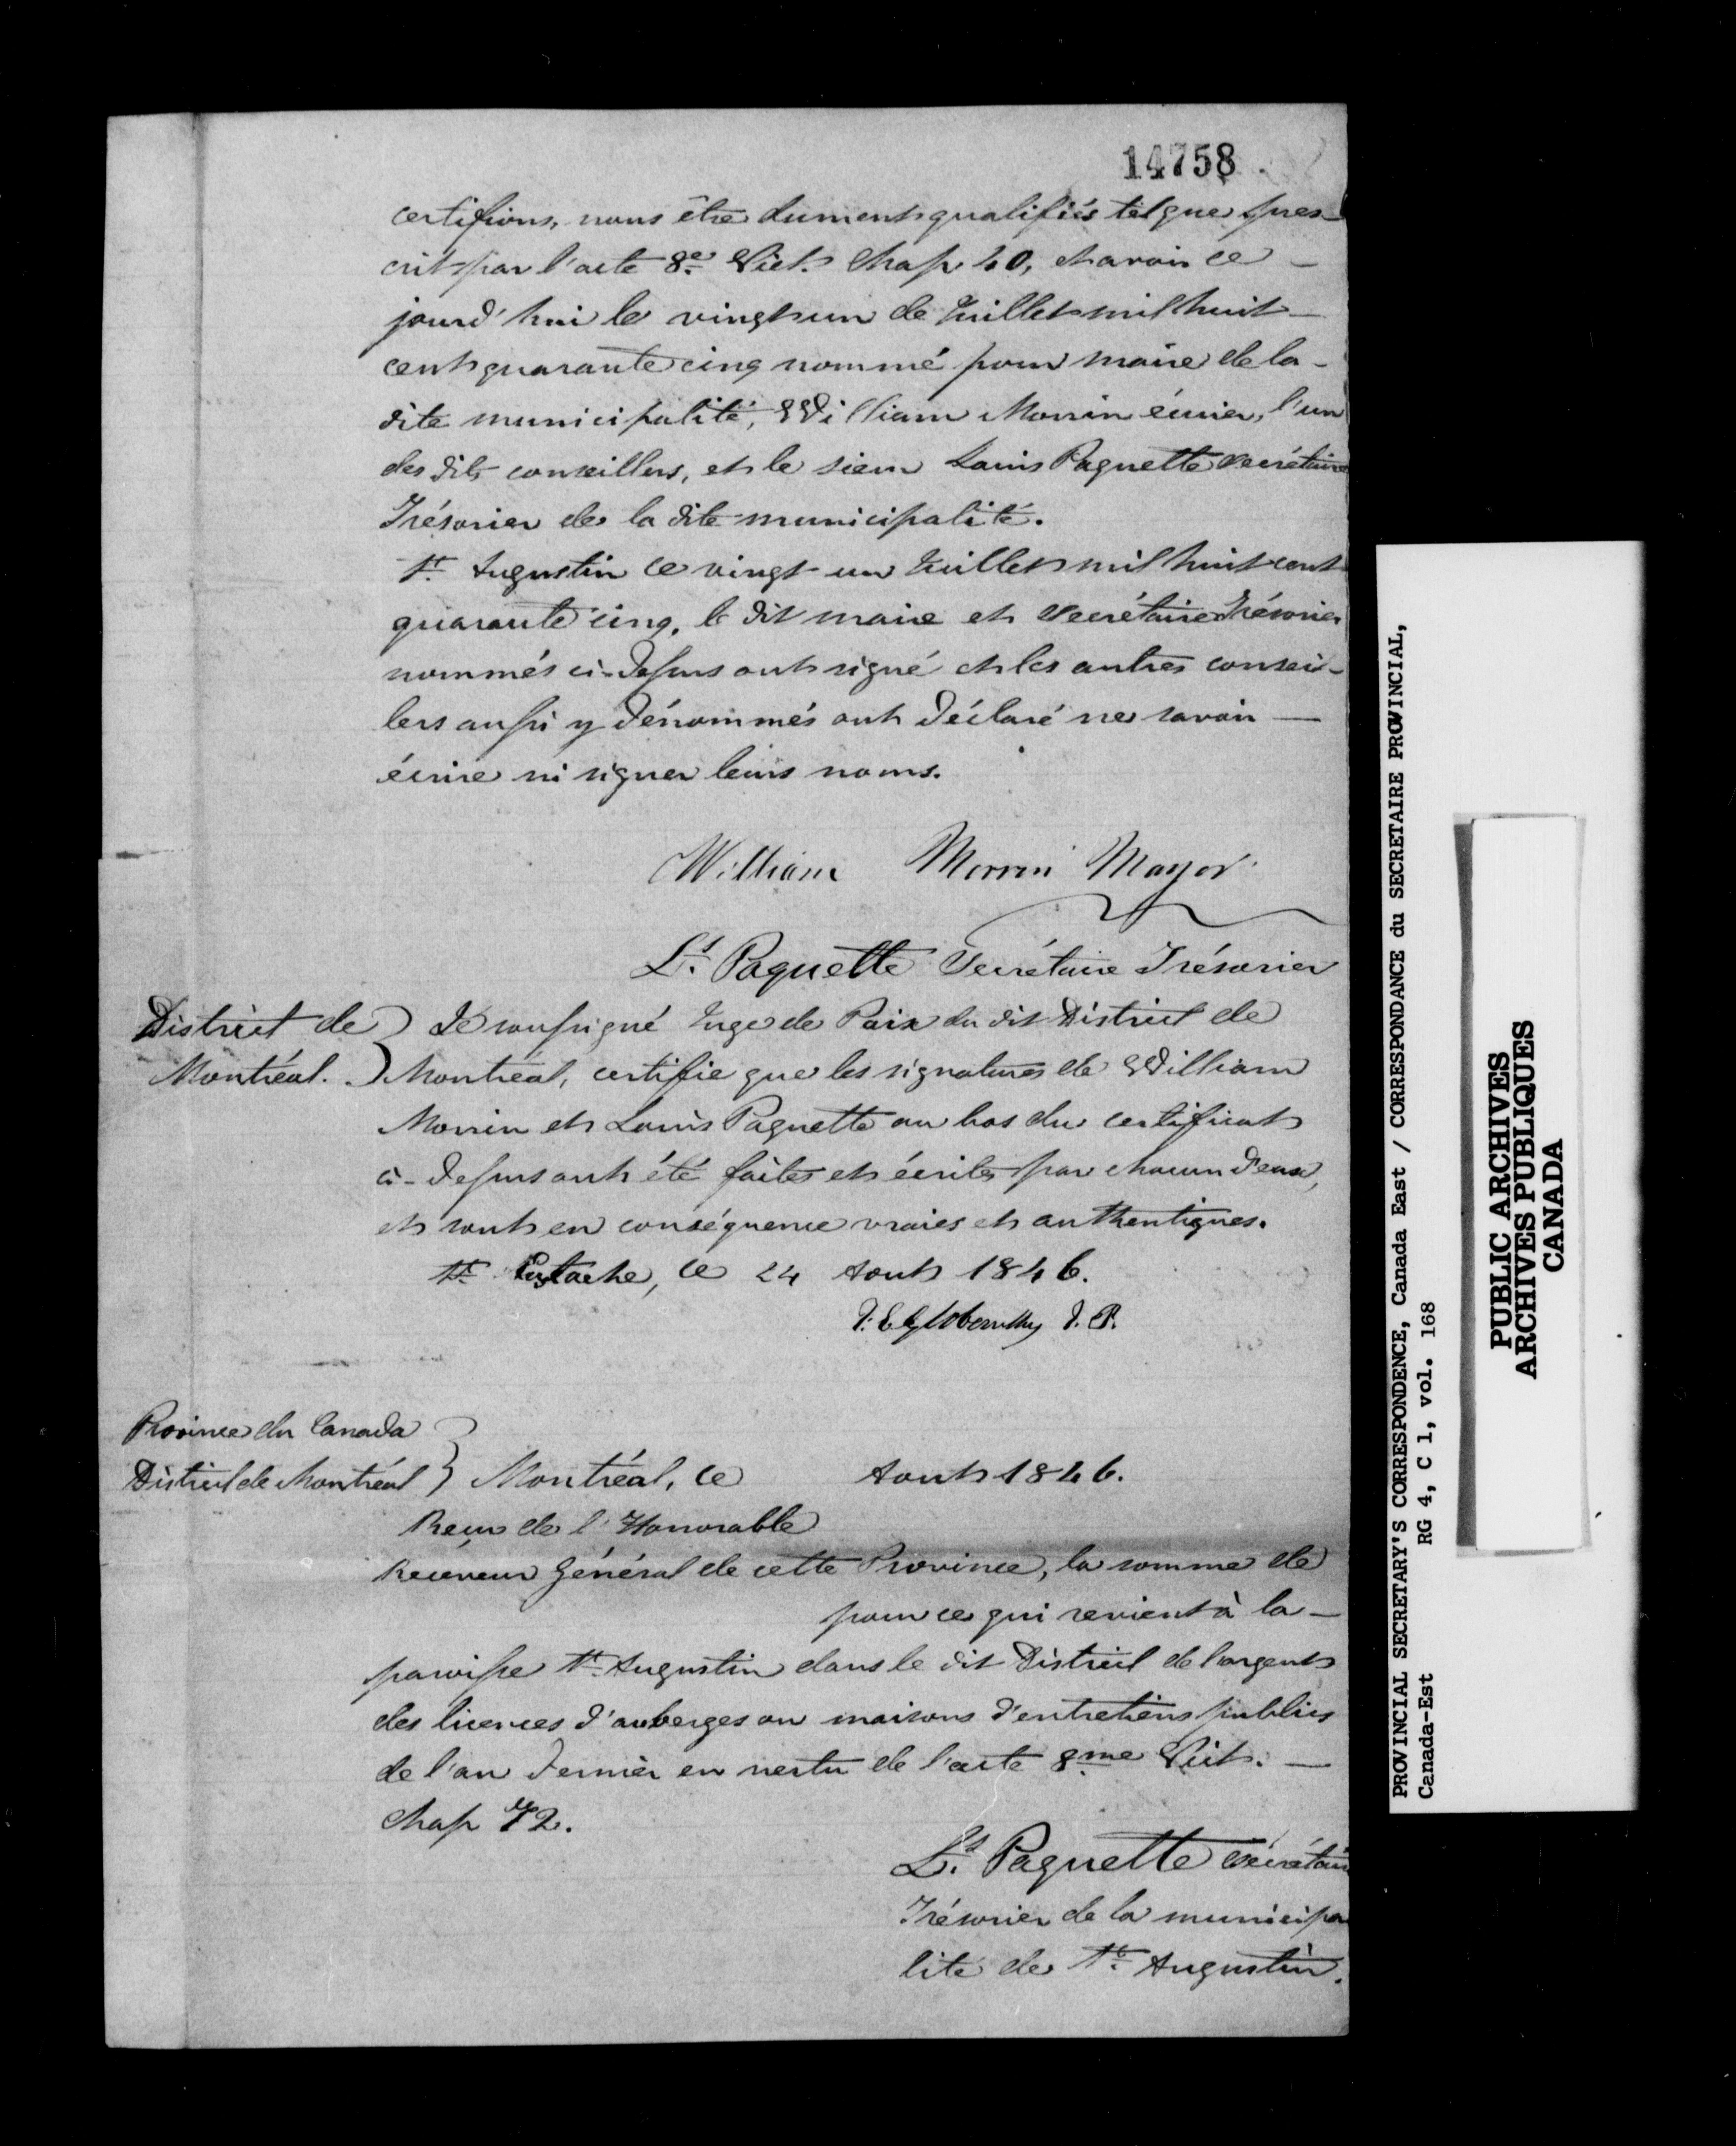 14758
certifions, nous être dument qualifiés tel que pres-
crit par l'acte 8e. Vict. Chap 40, et avoir ce -
jourd'hui le vingt un de Juillet mil huit -
cent quarante cinq nommé pour maire de la -
dite municipalité, William Morrin écuier, l'un
des dits conseillers, et le sieur Louis Paquette secrétaire
Trésorier de la dite municipalité.
St. Augustin ce vingt un Juillet mil huit cent
quarante cinq, le dit maire et Secrétaire Trésorier
nommés ci-dessus ont signé et les autres conseil-
lers aussi y dénommés ont déclaré ne savoir —
écrire ni signer leurs noms.
William Morrin Mayor
Ls. Paquette Secrétaire Trésorier
District de } Je soussigné Juge de Paix du dit District de
Montréal. } Montréal, certifie que les signatures de William
Morrin et Louis Paquette au bas du certificat
ci-dessus ont été faites et écrites par chacun d'eux,
et sont en conséquence vraies et authentiques.
St. Eustache, ce 24 Aout 1846.
J. P.
Province du Canada }
District de Montréal } Montréal, ce Aout 1846.
Reçu de l'Honorable
Receveur Général de cette Province, la somme de
pour ce qui revient à la -
paroisse St. Augustin dans le dit District de l'argent
des licences d'auberges ou maisons d'entretiens publics
de l'an dernier en vertu de l'acte 8me Vict. —
Chap 72.
Ls. Paquette Secrétaire
Trésorier de la municipa
lité de St. Augustin.
PROVINCIAL SECRETARY'S CORRESPONDENCE, Canada East / CORRESPONDANCE du SECRETAIRE PROVINCIAL,
Canada-Est RG 4, C 1, vol. 168
PUBLIC ARCHIVES
ARCHIVES PUBLIQUES
CANADA